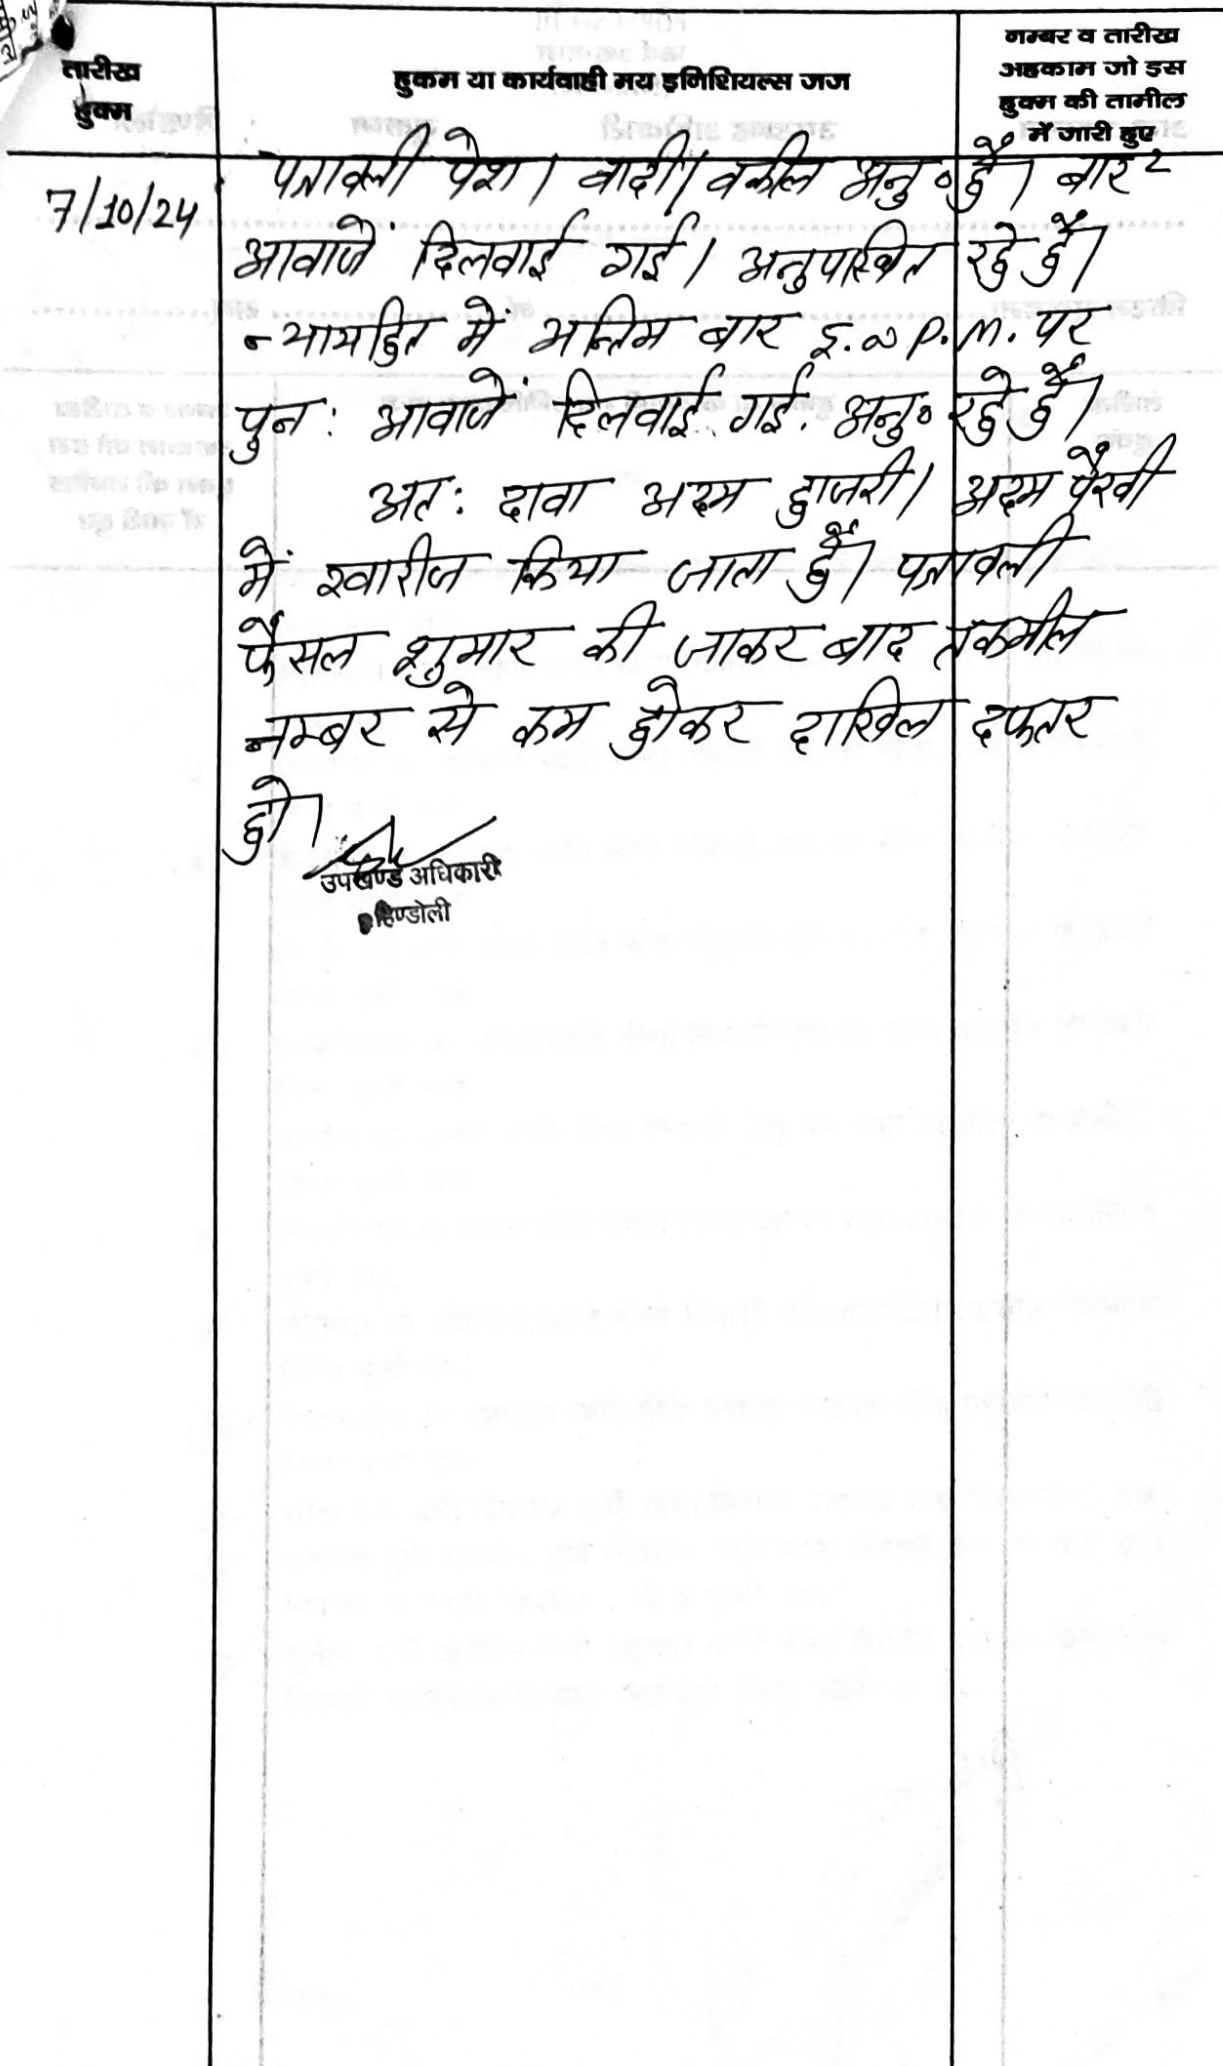 तारीख
हुक्म
हुकम या कार्यवाही मय इनिशियल्स जज
नम्बर व तारीख
अहकाम जो इस
हुक्म की तामील
में जारी हुए
7/10/24
पत्रावली पेश। वादी/वकील अनु० है। बार²
आवाजें दिलवाई गई। अनुपस्थित रहे हैं।
न्यायहित में अन्तिम बार P.M. पर
पुन: आवाजें दिलवाई गई. अनु० रहे हैं।
अत: दावा अदम हाजरी/ अदम पैरवी
में खारीज किया जाता है। पत्रावली
फैसल शुमार की जाकर बाद तकमील
नम्बर से कम होकर दाखिल दफ्तर
हो।
उपखण्ड अधिकारी
हिण्डोली